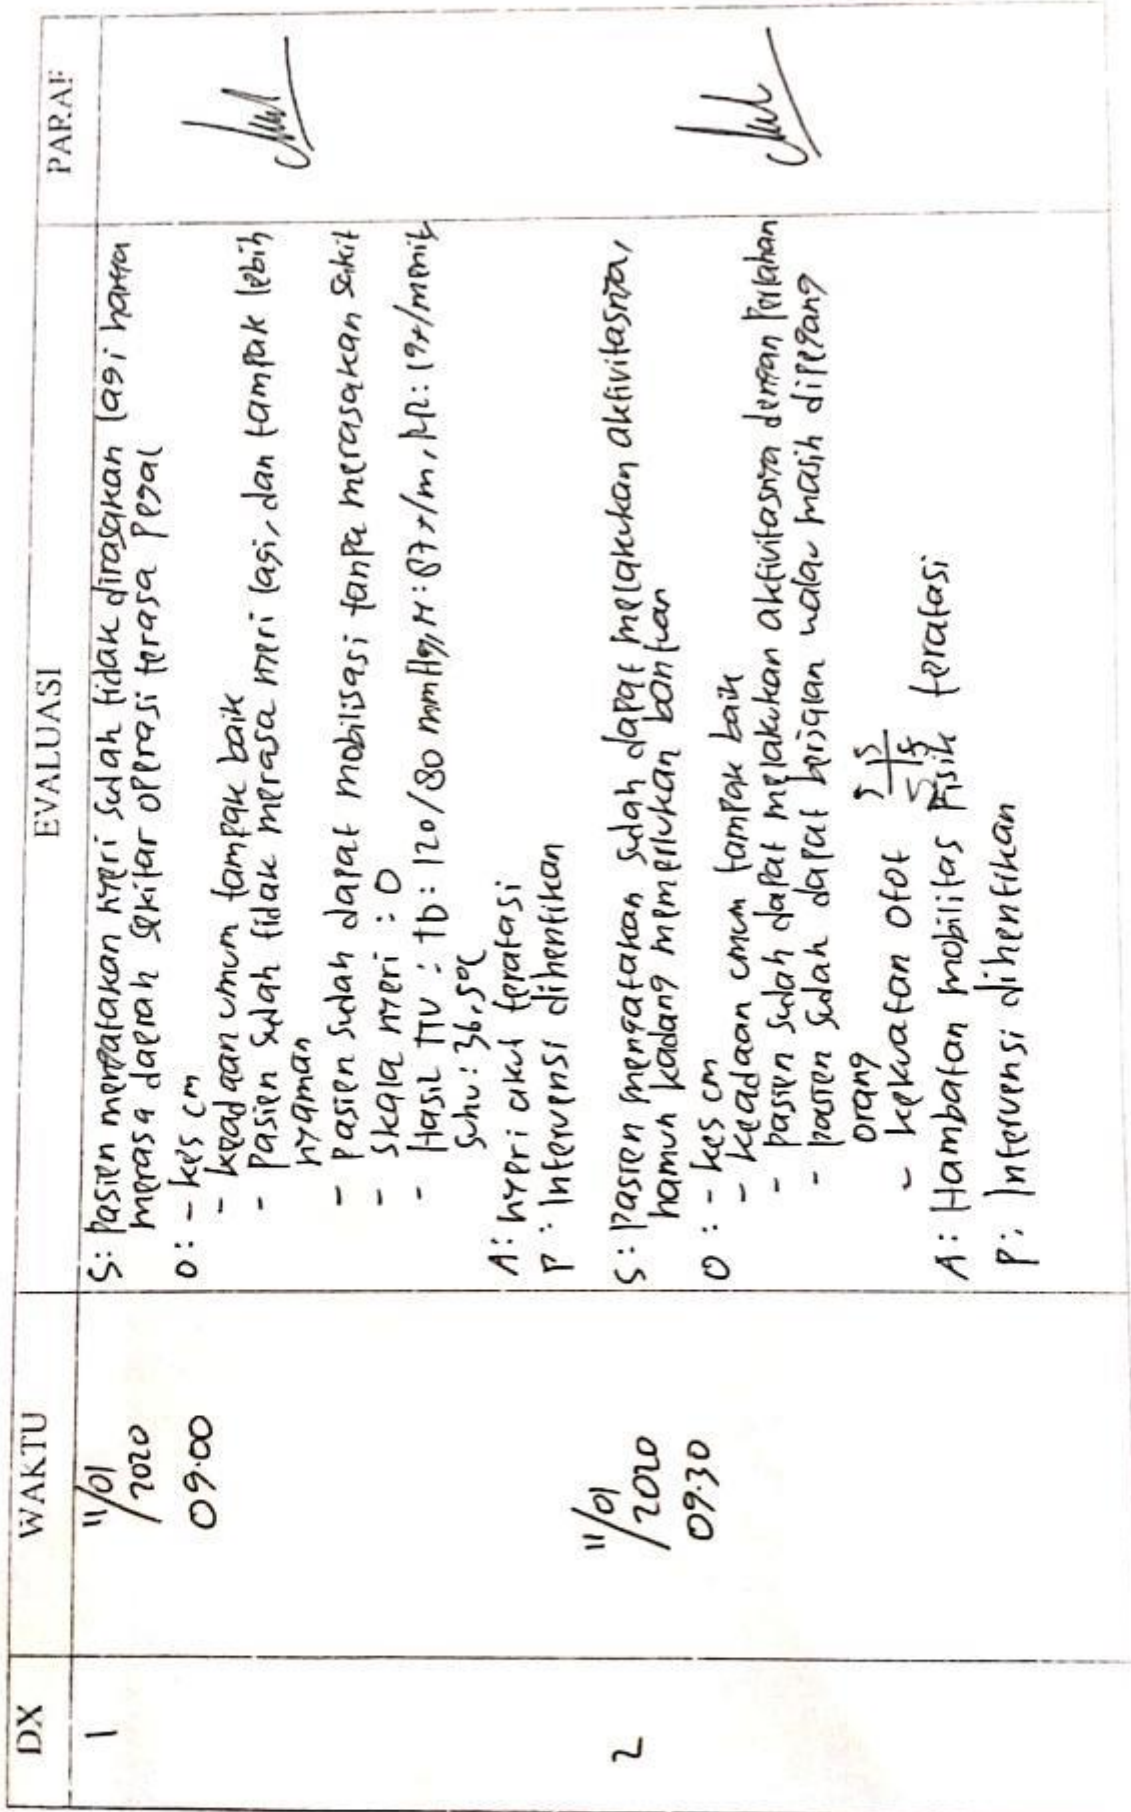 DX WAKTU EVALUASI PARAF
1
11/01
/2020
09.00
S: Pasien mengatakan nyeri sudah tidak dirasakan lagi hanya
merasa daerah sekitar operasi terasa pegal
O: - kes cm
- keadaan umum tampak baik
- pasien sudah tidak merasa nyeri lagi, dan tampak lebih
nyaman
- pasien sudah dapat mobilisasi tanpa merasakan sakit
- skala nyeri : 0
- Hasil TTV : TD : 120/80 mmHg, N : 87x/m, RR : 19x/menit
Suhu : 36,5°C
A: nyeri akut teratasi
P : Intervensi dihentikan
2
11/01
/2020
09.30
S : Pasien mengatakan sudah dapat melakukan aktivitasnya,
namun kadang memerlukan bantuan
O : - kes cm
- keadaan umum tampak baik
- pasien sudah dapat melakukan aktivitasnya dengan perlahan
- pasien sudah dapat berjalan walau masih dipegang
orang
- kekuatan otot 5 | 5
5 | 5
A : Hambatan mobilitas Fisik teratasi
P : Intervensi dihentikan